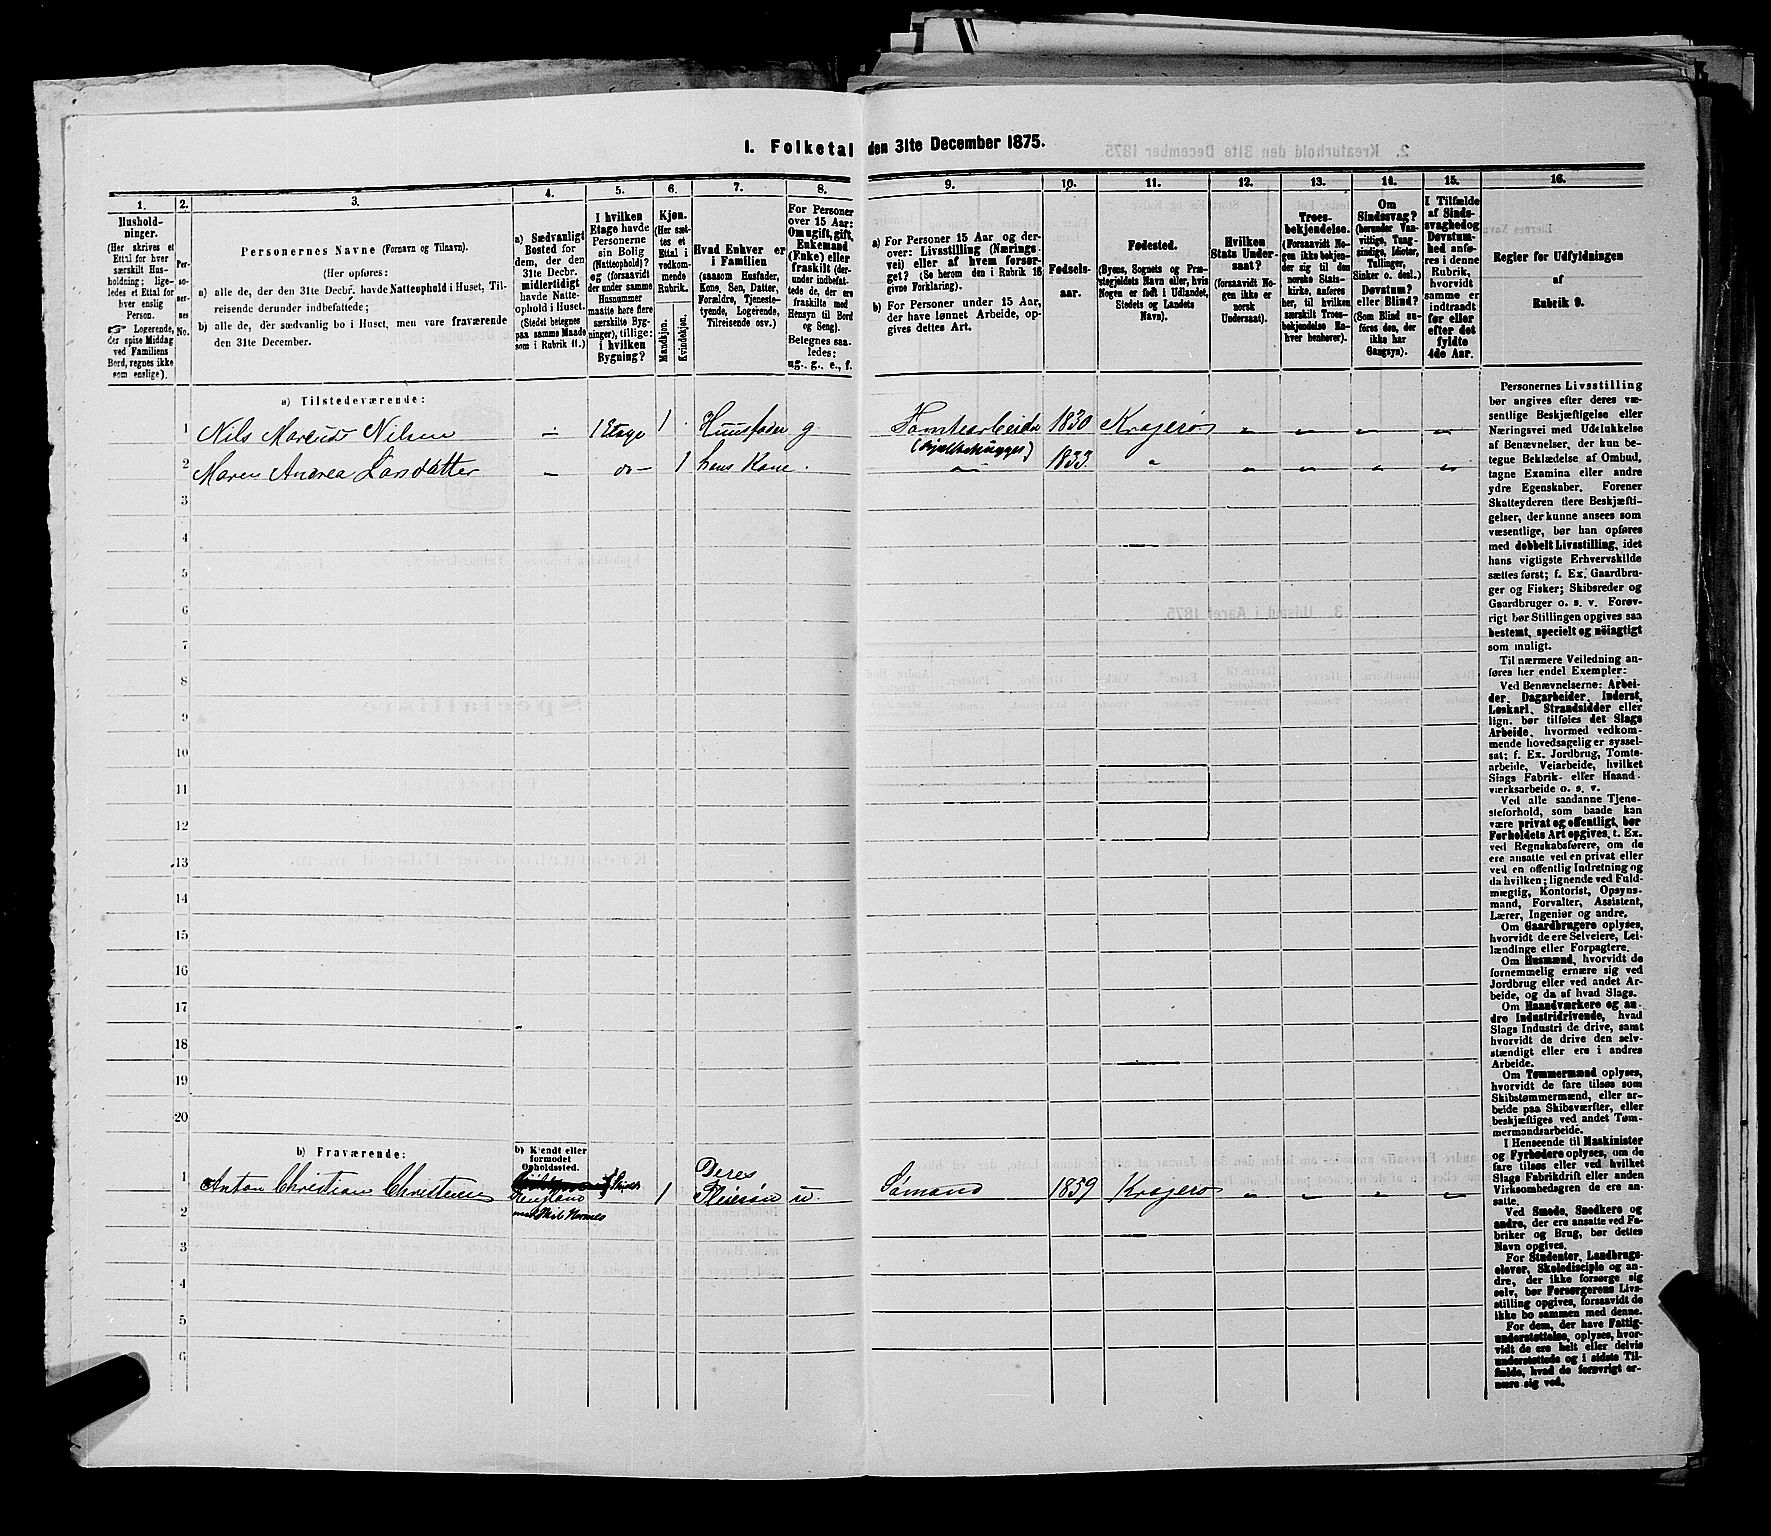 1. Folketal den 31te December 1875.
1.
2.
3.
4.
5.
6.
7.
8.
9.
10.
11.
12.
13.
14.
15.
16.
Hushold-
ninger.
(Her skrives et
Ettal for hver
særskilt Hus-
holdning; lige-
ledes et Ettal for
hver enslig
Person.
☞ Logerende,
der spise Middag
ved Familiens
Bord, regnes ikke
som enslige).
Per-
so-
ner-
nes
No.
Personernes Navne (Fornavn og Tilnavn).
(Her opføres:
a) alle de, der den 31te Decbr. havde Natteophold i Huset, Til-
reisende derunder indbefattede;
b) alle de, der sædvanlig bo i Huset, men vare fraværende
den 31te December.
a) Sædvanligt
Bosted for
dem, der den
31te Decbr.
midlertidigt
havde Natte-
ophold i Huset.
(Stedet betegnes
paa samme Maade
som i Rubrik 11.)
I hvilken
Etage havde
Personerne
sin Bolig
(Natteophold)?
(forsaavidt
der under samme
Husnummer
maatte høre flere
særskilte Byg-
ninger), tillige:
i hvilken
Bygning?
Kjøn.
(Her sæt-
tes et
Ettal i
vedkom-
mende
Rubrik.
Mandkjøn.
Kvindekjøn.
Hvad Enhver er
i Familien
(saasom Husfader,
Kone, Søn, Datter,
Forældre, Tjeneste-
tyende, Logerende,
Tilreisende osv.)
For Personer
over 15 Aar:
Om ugift, gift,
Enkemand
(Enke) eller
fraskilt (der-
under indbefat-
tede de, der ere
fraskilte med
Hensyn til Bord
og Seng).
Betegnes saa-
ledes:
ug., g., e., f.
a) For Personer 15 Aar og der-
over: Livsstilling (Nærings-
vei) eller af hvem forsør-
get? (Se herom den i Rubrik 16
givne Forklaring).
b) For Personer under 15 Aar,
der have lønnet Arbeide, op-
gives dettes Art.
Fødsels-
aar.
Fødested.
(Byens, Sognets og Præ-
stegjeldets Navn eller, hvis
Nogen er født i Udlandet,
Stedets og Landets
Navn).
Hvilken
Stats Under-
saat?
(forsaavidt No-
gen ikke er
norsk
Undersaat).
Troes-
bekjendelse.
(Forsaavidt No-
gen ikke bekjen-
der sig til den
norske Stats-
kirke, anføres
her, til hvilken
særskilt Troes-
bekjendelse En-
hver henhører).
Om
Sindssvag?
(herunder Van-
vittige, Tung-
sindige, Idioter,
Tullinger,
Sinker o. desl.).
Døvstum?
eller Blind?
(Som Blind an-
føres den, der
ikke har
Gangsyn).
I Tilfælde
af Sinds-
svaghed og
Døvstum-
hed anfø-
res i denne
Rubrik,
hvorvidt
samme er
indtraadt
før eller
efter det
fyldte
4de Aar.
Regler for Udfyldningen
af
Rubrik 9.
a) Tilstedeværende:
1 Nils Marcus Nilsen 1 Etage 1 Huusfader g Tomtearbeider 1830 Kragerø
2 Maren Andrea Larsdatter do 1 hans Kone 1833 "
3
4
5
6
7
8
9
10
11
12
13
14
15
16
17
18
19
20
b) Fraværende:
b) Kjendt eller
formodet
Opholdssted.
1 Anton Christian Christensen 1 Deres Pleiesøn u Sømand 1859 Kragerø
England
med Skib
2
3
4
5
6
Personernes Livsstilling
bør angives efter deres væ-
sentlige Beskjæftigelse eller
Næringsvei med Udelukkelse
af Benævnelser, der kun be-
tegne Beklædelse af Ombud,
tagne Examina eller andre
ydre Egenskaber. Forener
Skatteyderen flere Beskjæfti-
gelser, der kunne ansees som
væsentlige, bør han opføres
med dobbelt Livsstilling, idet
hans vigtigste Erhvervskilde
sættes først; f. Ex. Gaardbru-
ger og Fisker; Skibsreder og
Gaardbruger o. s. v. Forøv-
rigt bør Stillingen opgives saa
bestemt, specielt og nöiagtigt
som muligt.
Til nærmere Veiledning an-
føres her endel Exempler:
Ved Benævnelserne: Arbei-
der, Dagarbeider, Inderst,
Løskarl, Strandsidder eller
lign. bør tilføies det Slags
Arbeide, hvormed vedkom-
mende hovedsagelig er syssel-
sat; f. Ex. Jordbrug, Tomte-
arbeide, Veiarbeide, hvilket
Slags Fabrik- eller Haand-
værksarbeide o. s. v.
Ved alle saadanne Tjene-
steforhold, som baade kan
være privat og offentligt, bør
Forholdets Art opgives, t. Ex.
ved Regnskabsførere, om de
ere ansatte ved en privat eller
ved en offentlig Indretning og
da hvilken; lignende ved Fuld-
mægtig, Kontorist, Opsyns-
mand, Forvalter, Assistent,
Lærer, Ingeniør og andre.
Om Gaardbrugere oplyses,
hvorvidt de ere Selveiere, Lei-
lændinge eller Forpagtere.
Om Husmænd, hvorvidt de
fornemmelig ernære sig ved
Jordbrug eller ved andet Ar-
beide, og da af hvad Slags.
Om Haandværkere og an-
dre Industridrivende, hvad
Slags Industri de drive, samt
hvorvidt de drive den selv-
stændigt eller ere i andres
Arbeide.
Om Tømmermænd oplyses,
hvorvidt de fare tilsøs som
Skibstømmermænd, eller ar-
beide paa Skibsværfter, eller
beskjæftiges ved andet Tøm-
mermandsarbeide.
I Henseende til Maskinister
og Fyrbødere oplyses, om de
fare tilsøs eller ved hvilket
Slags Fabrikdrift eller anden
Virksomhedsgren de ere an-
satte.
Ved Smede, Snedkere og
andre, der ere ansatte ved Fa-
briker og Brug, bør dettes
Navn opgives.
For Studenter, Landbrugs-
elever, Skoledisciple og an-
dre, der ikke forsørge sig
selv, bør Forsørgerens Livs-
stilling opgives, forsaavidt de
ikke bo sammen med denne.
For dem, der have Fattig-
understøttelse, oplyses, hvor-
vidt de ere helt eller delvis
understøttede og i sidste Til-
fælde, hvad de forøvrigt er-
nære sig ved.